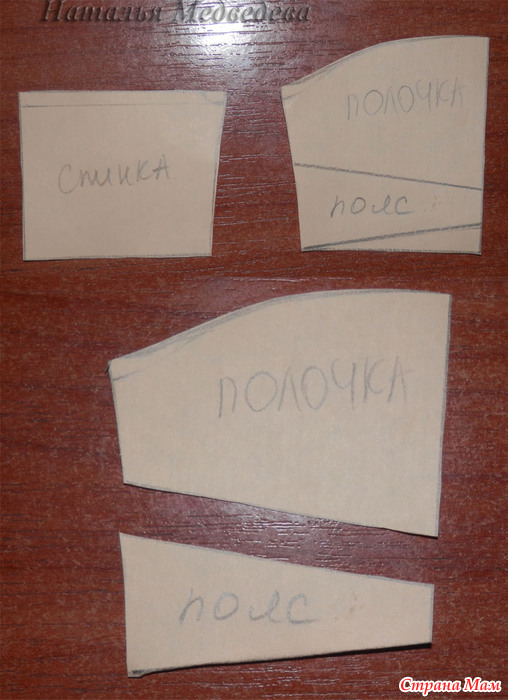 Наталья Медведева
ПОЛОЧКА
СПИНКА
ПОЯС
ПОЛОЧКА
ПОЯС
Страна Мам